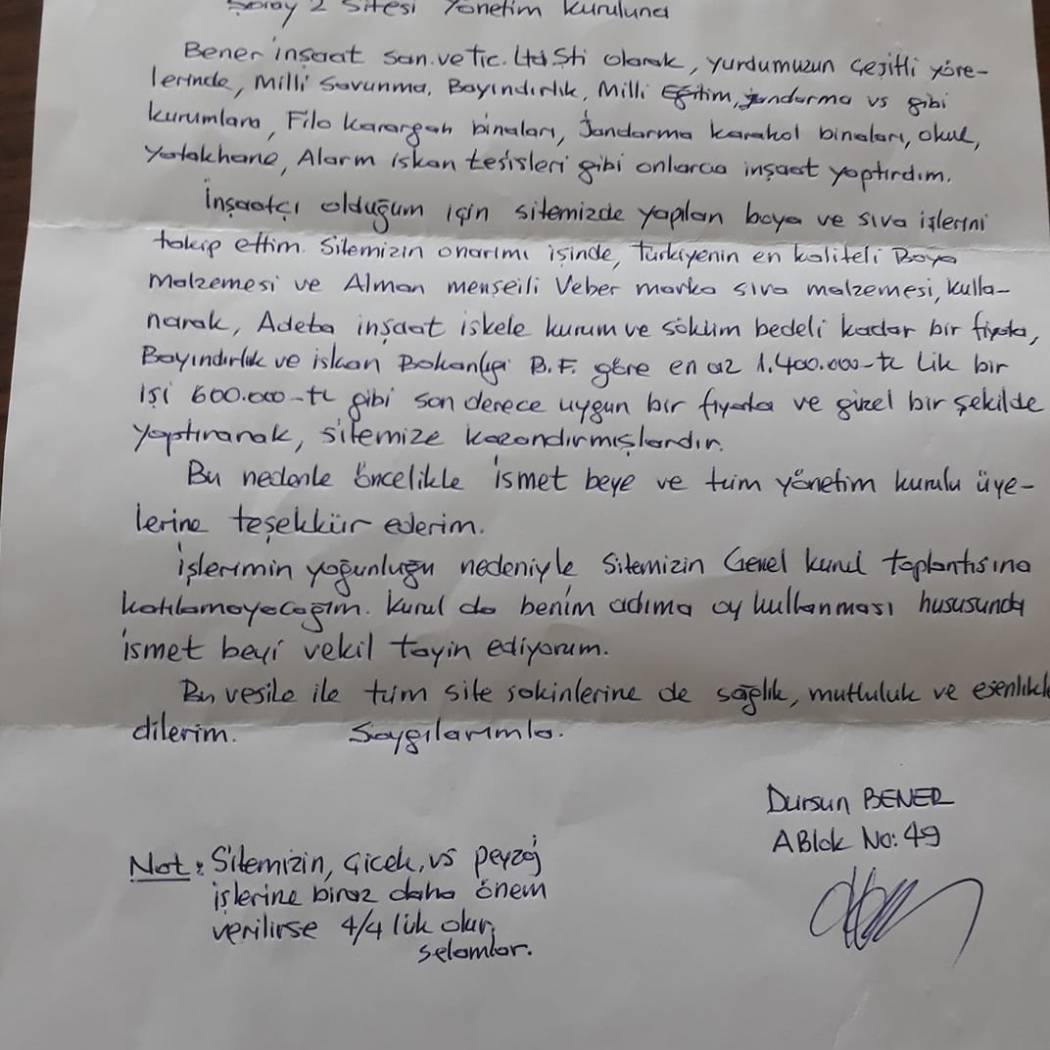 Saray 2 Sitesi Yönetim Kuruluna
Bener inşaat San.ve Tic. Ltd Şti olarak, yurdumuzun çeşitli yöre-
lerinde, Milli Savunma, Bayındırlık, Milli Eğitim, jandarma vs gibi
kurumlara, Filo Karargah binaları, Jandarma karakol binaları, okul,
Yatakhane, Alarm iskan tesisleri gibi onlarca inşaat yaptırdım.
İnşaatçı olduğum için sitemizde yapılan boya ve sıva işlerini
takip ettim. Sitemizin onarımı işinde, Türkiyenin en kaliteli Boya
Malzemesi ve Alman menşeili Veber marka sıva malzemesi, kulla-
narak, Adeta inşaat iskele kurum ve söküm bedeli kadar bir fiyata,
Bayındırlık ve iskan Bakanlığı B.F. göre en az 1.400.000-tl lik bir
işi 600.000-tl gibi son derece uygun bir fiyata ve güzel bir şekilde
yaptırarak, sitemize kazandırmışlardır.
Bu nedenle öncelikle ismet beye ve tüm yönetim kurulu üye-
lerine teşekkür ederim.
işlerimin yoğunluğu nedeniyle Sitemizin Genel kurul toplantısına
katılamayacağım. Kurul da benim adıma oy kullanması hususunda
ismet beyi vekil tayin ediyorum.
Bu vesile ile tüm site sakinlerine de sağlık, mutluluk ve esenlikle
dilerim. Saygılarımla.
Dursun BENER
A Blok No: 49
Not: Sitemizin, çicek, vs peyzaj
işlerine biraz daha önem
verilirse 4/4 lük olur,
selamlar.